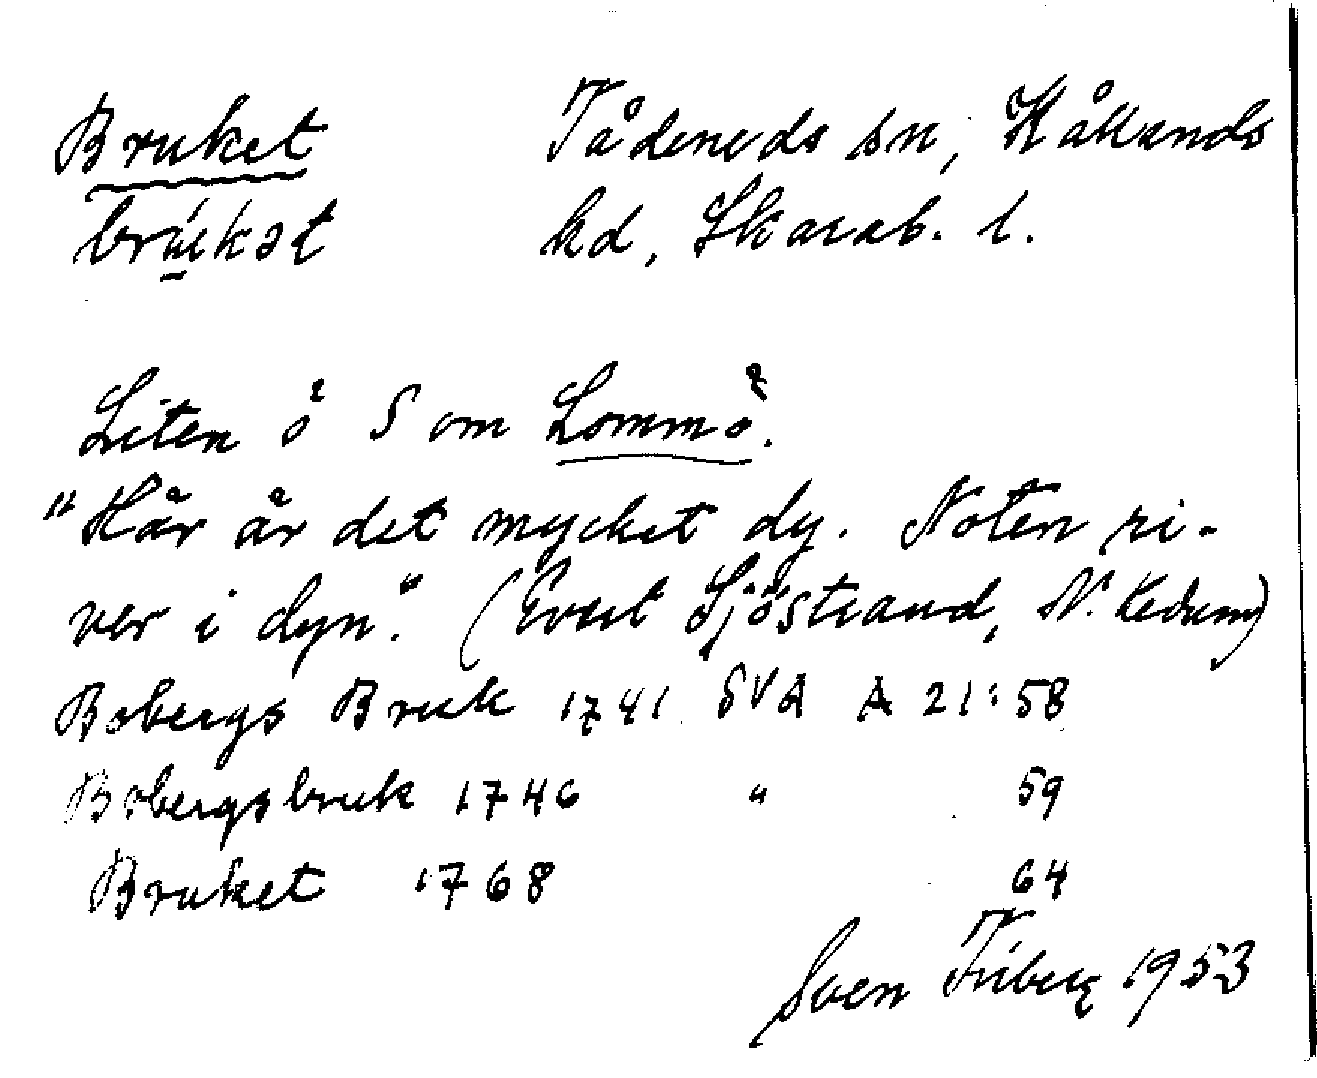 Bruket Tådeneds sn, Kållands
brúkət hd, Skarab. l.
Liten ö S om Lommö.
"Här är det mycket dy. Noten ri-
ver i dyn." (Evert Sjöstrand, N. Kedum)
Bobergs Bruk 1741 SVA A 21:58
Bobergsbruk 1746 " 59
Bruket 1768 64
Sven Friberg 1953